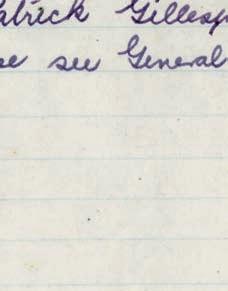 atrick Gillesp
se see General